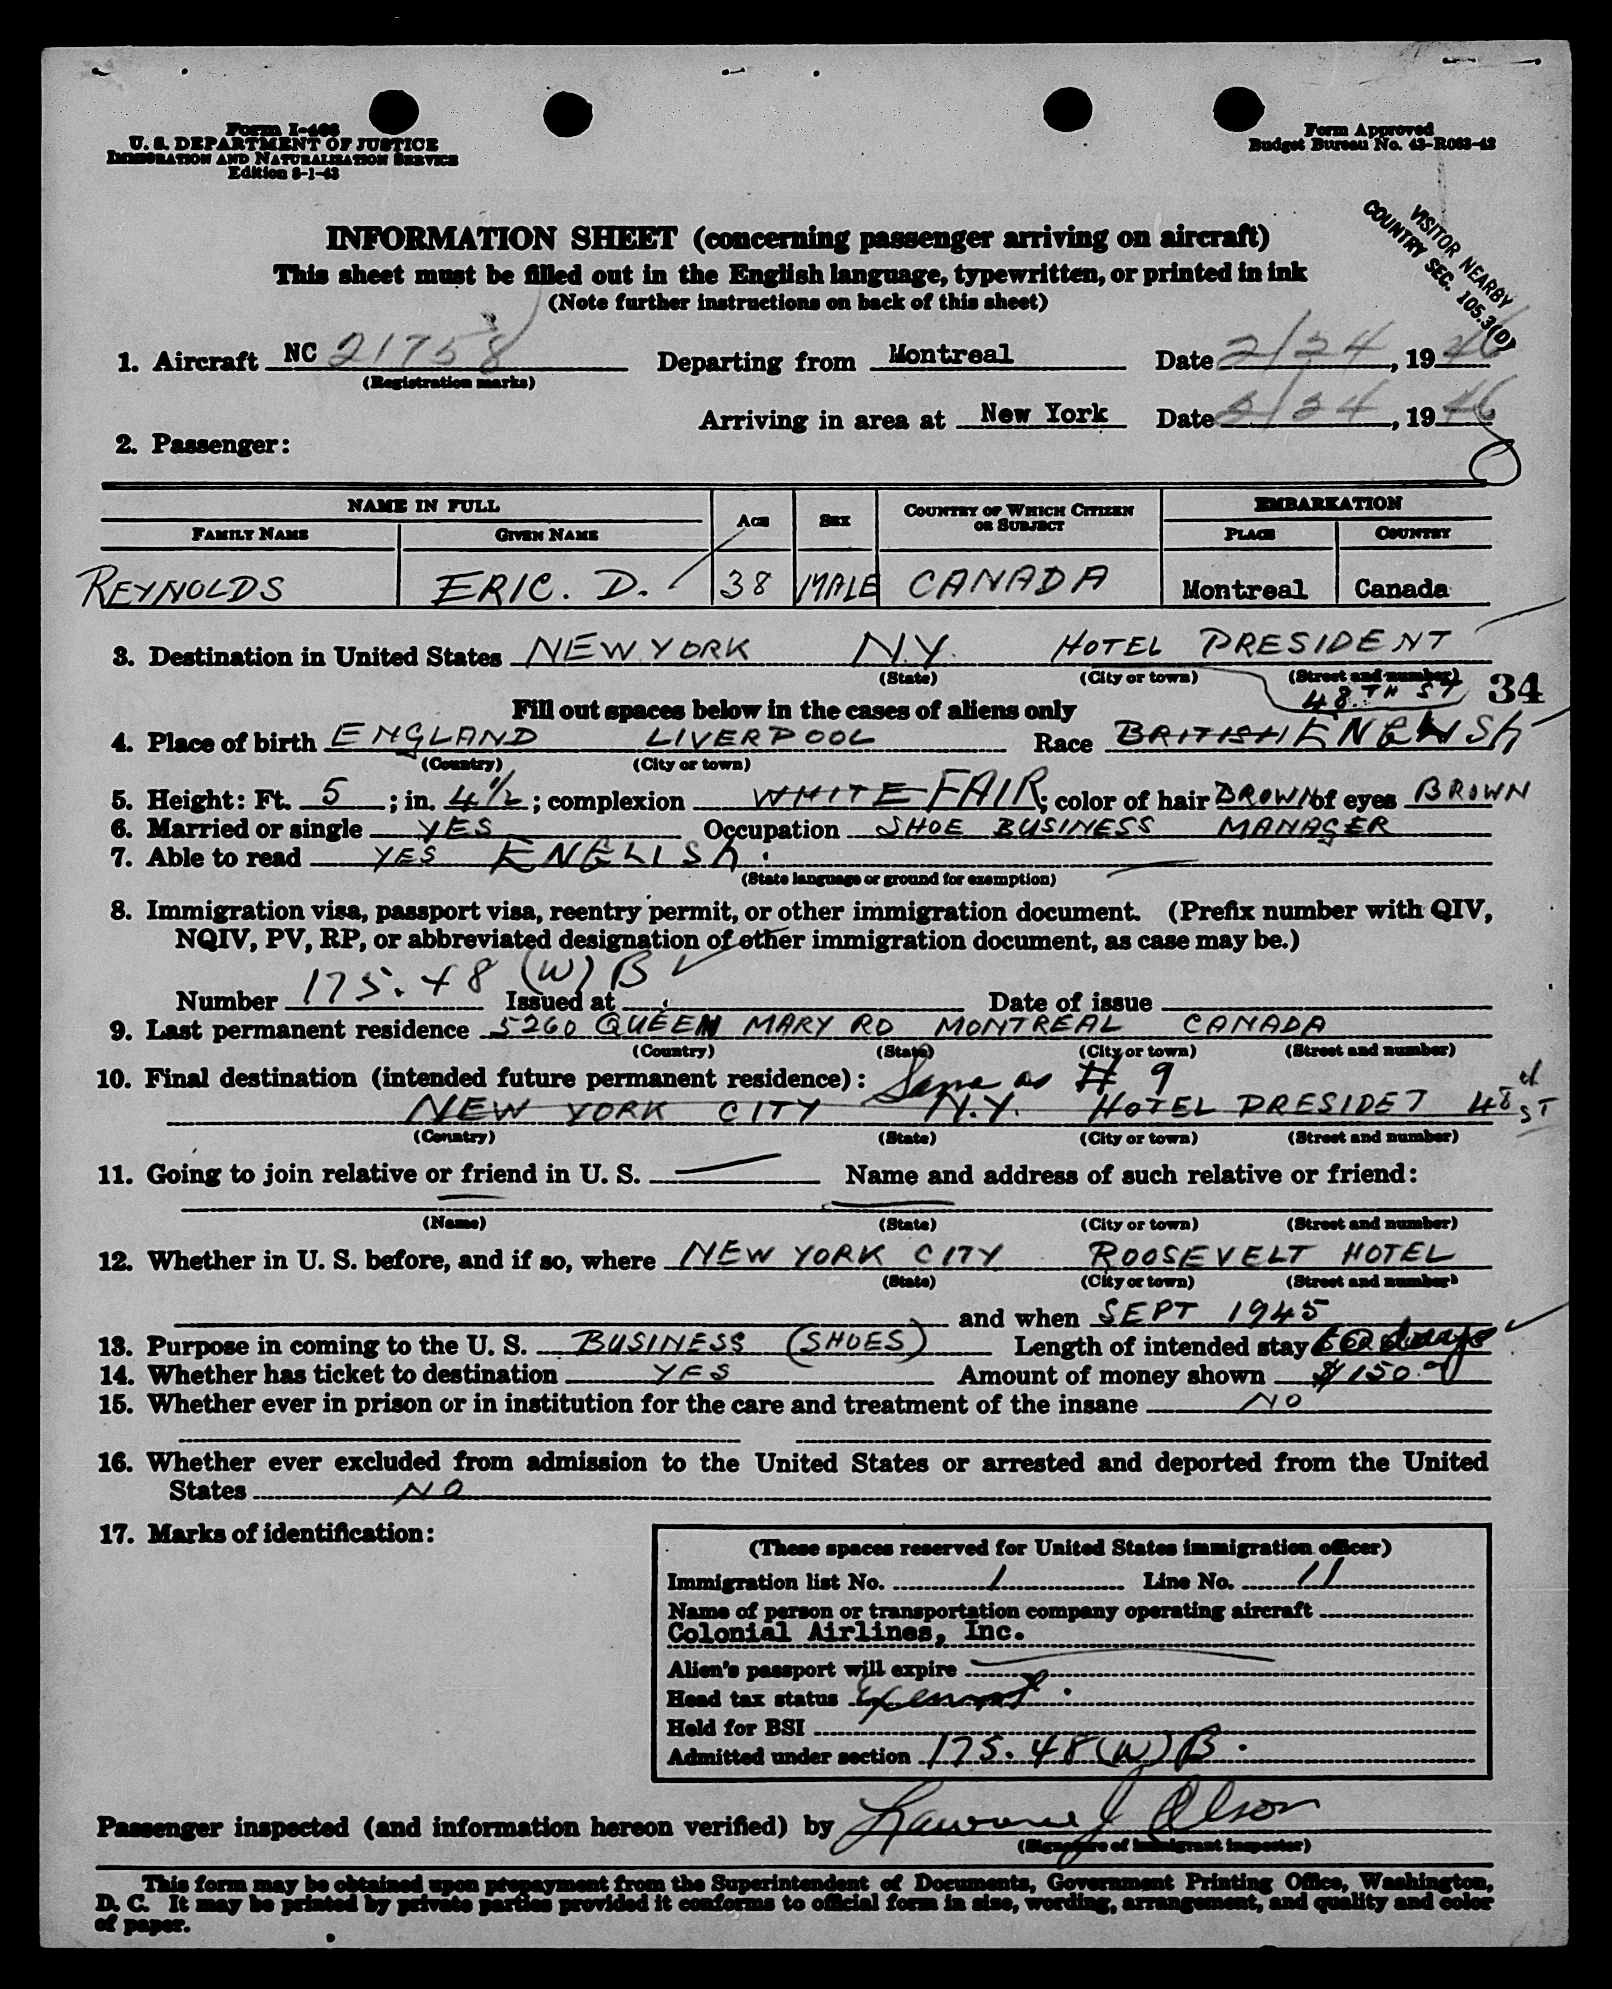 Form I-466
U. S. DEPARTMENT OF JUSTICE
IMMIGRATION AND NATURALIZATION SERVICE
Edition 8-1-43
Form Approved
Budget Bureau No. 43-R063-42
VISITOR NEARBY
COUNTRY SEC. 105.3(D)
INFORMATION SHEET (concerning passenger arriving on aircraft)
This sheet must be filled out in the English language, typewritten, or printed in ink
(Note further instructions on back of this sheet)
1. Aircraft NC 21758 Departing from Montreal Date 2/24, 1946
(Registration marks)
Arriving in area at New York Date 2/24, 1946
2. Passenger:
NAME IN FULL AGE SEX COUNTRY OF WHICH CITIZEN OR SUBJECT EMBARKATION
FAMILY NAME GIVEN NAME PLACE COUNTRY
REYNOLDS ERIC. D. 38 MALE CANADA Montreal Canada
3. Destination in United States NEW YORK N.Y. HOTEL PRESIDENT
(State) (City or town) (Street and number)
48TH ST 34
Fill out spaces below in the cases of aliens only
4. Place of birth ENGLAND LIVERPOOL Race BRITISH ENGLISH
(Country) (City or town)
5. Height: Ft. 5; in. 4 1/2; complexion WHITE FAIR; color of hair BROWN of eyes BROWN
6. Married or single YES Occupation SHOE BUSINESS MANAGER
7. Able to read YES ENGLISH.
(State language or ground for exemption)
8. Immigration visa, passport visa, reentry permit, or other immigration document. (Prefix number with QIV,
NQIV, PV, RP, or abbreviated designation of other immigration document, as case may be.)
Number 175.48 (W) B Issued at Date of issue
9. Last permanent residence 5260 QUEEN MARY RD MONTREAL CANADA
(Country) (State) (City or town) (Street and number)
10. Final destination (intended future permanent residence): Same as # 9
NEW YORK CITY N.Y. HOTEL PRESIDET 48 ST
(Country) (State) (City or town) (Street and number)
11. Going to join relative or friend in U. S. Name and address of such relative or friend:
(Name) (State) (City or town) (Street and number)
12. Whether in U. S. before, and if so, where NEW YORK CITY ROOSEVELT HOTEL
(State) (City or town) (Street and number)
and when SEPT 1945
13. Purpose in coming to the U. S. BUSINESS (SHOES) Length of intended stay days
14. Whether has ticket to destination YES Amount of money shown $150.
15. Whether ever in prison or in institution for the care and treatment of the insane NO
16. Whether ever excluded from admission to the United States or arrested and deported from the United
States NO
17. Marks of identification:
(These spaces reserved for United States immigration officer)
Immigration list No. 1 Line No. 11
Name of person or transportation company operating aircraft
Colonial Airlines, Inc.
Alien's passport will expire
Head tax status Exempt.
Held for BSI
Admitted under section 175.48(W)B.
Passenger inspected (and information hereon verified) by Lawrence J Olson
(Signature of immigrant inspector)
This form may be obtained upon prepayment from the Superintendent of Documents, Government Printing Office, Washington,
D. C. It may be printed by private parties provided it conforms to official form in size, wording, arrangement, and quality and color
of paper.